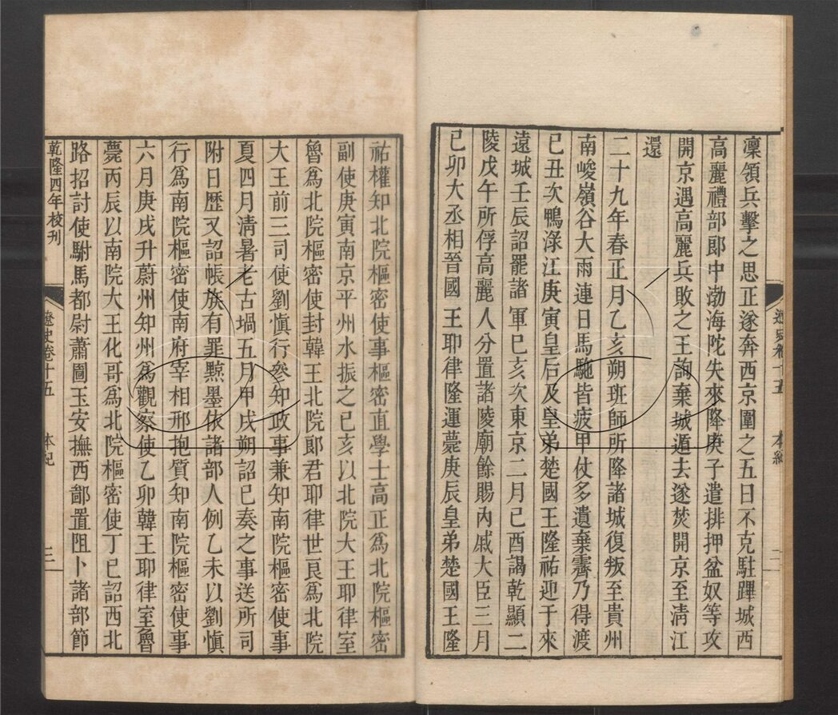 遼史卷十五 本紀 二
凜領兵擊之思正遂奔西京圍之五日不克駐蹕城西
高麗禮部郎中渤海陀失來降庚子遣排押盆奴等攻
開京遇高麗兵敗之王詢棄城遁去遂焚開京至清江
還
二十九年春正月乙亥朔班師所降諸城復叛至貴州
南峻嶺谷大雨連日馬駞皆疲甲仗多遺棄霽乃得渡
己丑次鴨淥江庚寅皇后及皇弟楚國王隆祐迎于來
遠城壬辰詔罷諸軍己亥次東京二月己酉謁乾顯二
陵戊午所俘高麗人分置諸陵廟餘賜內戚大臣三月
己卯大丞相晉國王耶律隆運薨庚辰皇弟楚國王隆
祐權知北院樞密使事樞密直學士高正爲北院樞密
副使庚寅南京平州水振之己亥以北院大王耶律室
魯爲北院樞密使封韓王北院郎君耶律世良爲北院
大王前三司使劉慎行參知政事兼知南院樞密使事
夏四月清暑老古堝五月甲戌朔詔已奏之事送所司
附日歷又詔帳族有罪黥墨依諸部人例乙未以劉慎
行爲南院樞密使南府宰相邢抱質知南院樞密使事
六月庚戌升蔚州知州爲觀察使乙卯韓王耶律室魯
薨丙辰以南院大王化哥爲北院樞密使丁巳詔西北
路招討使駙馬都尉蕭圖玉安撫西鄙置阻卜諸部節
乾隆四年校刊 遼史卷十五 本紀 三